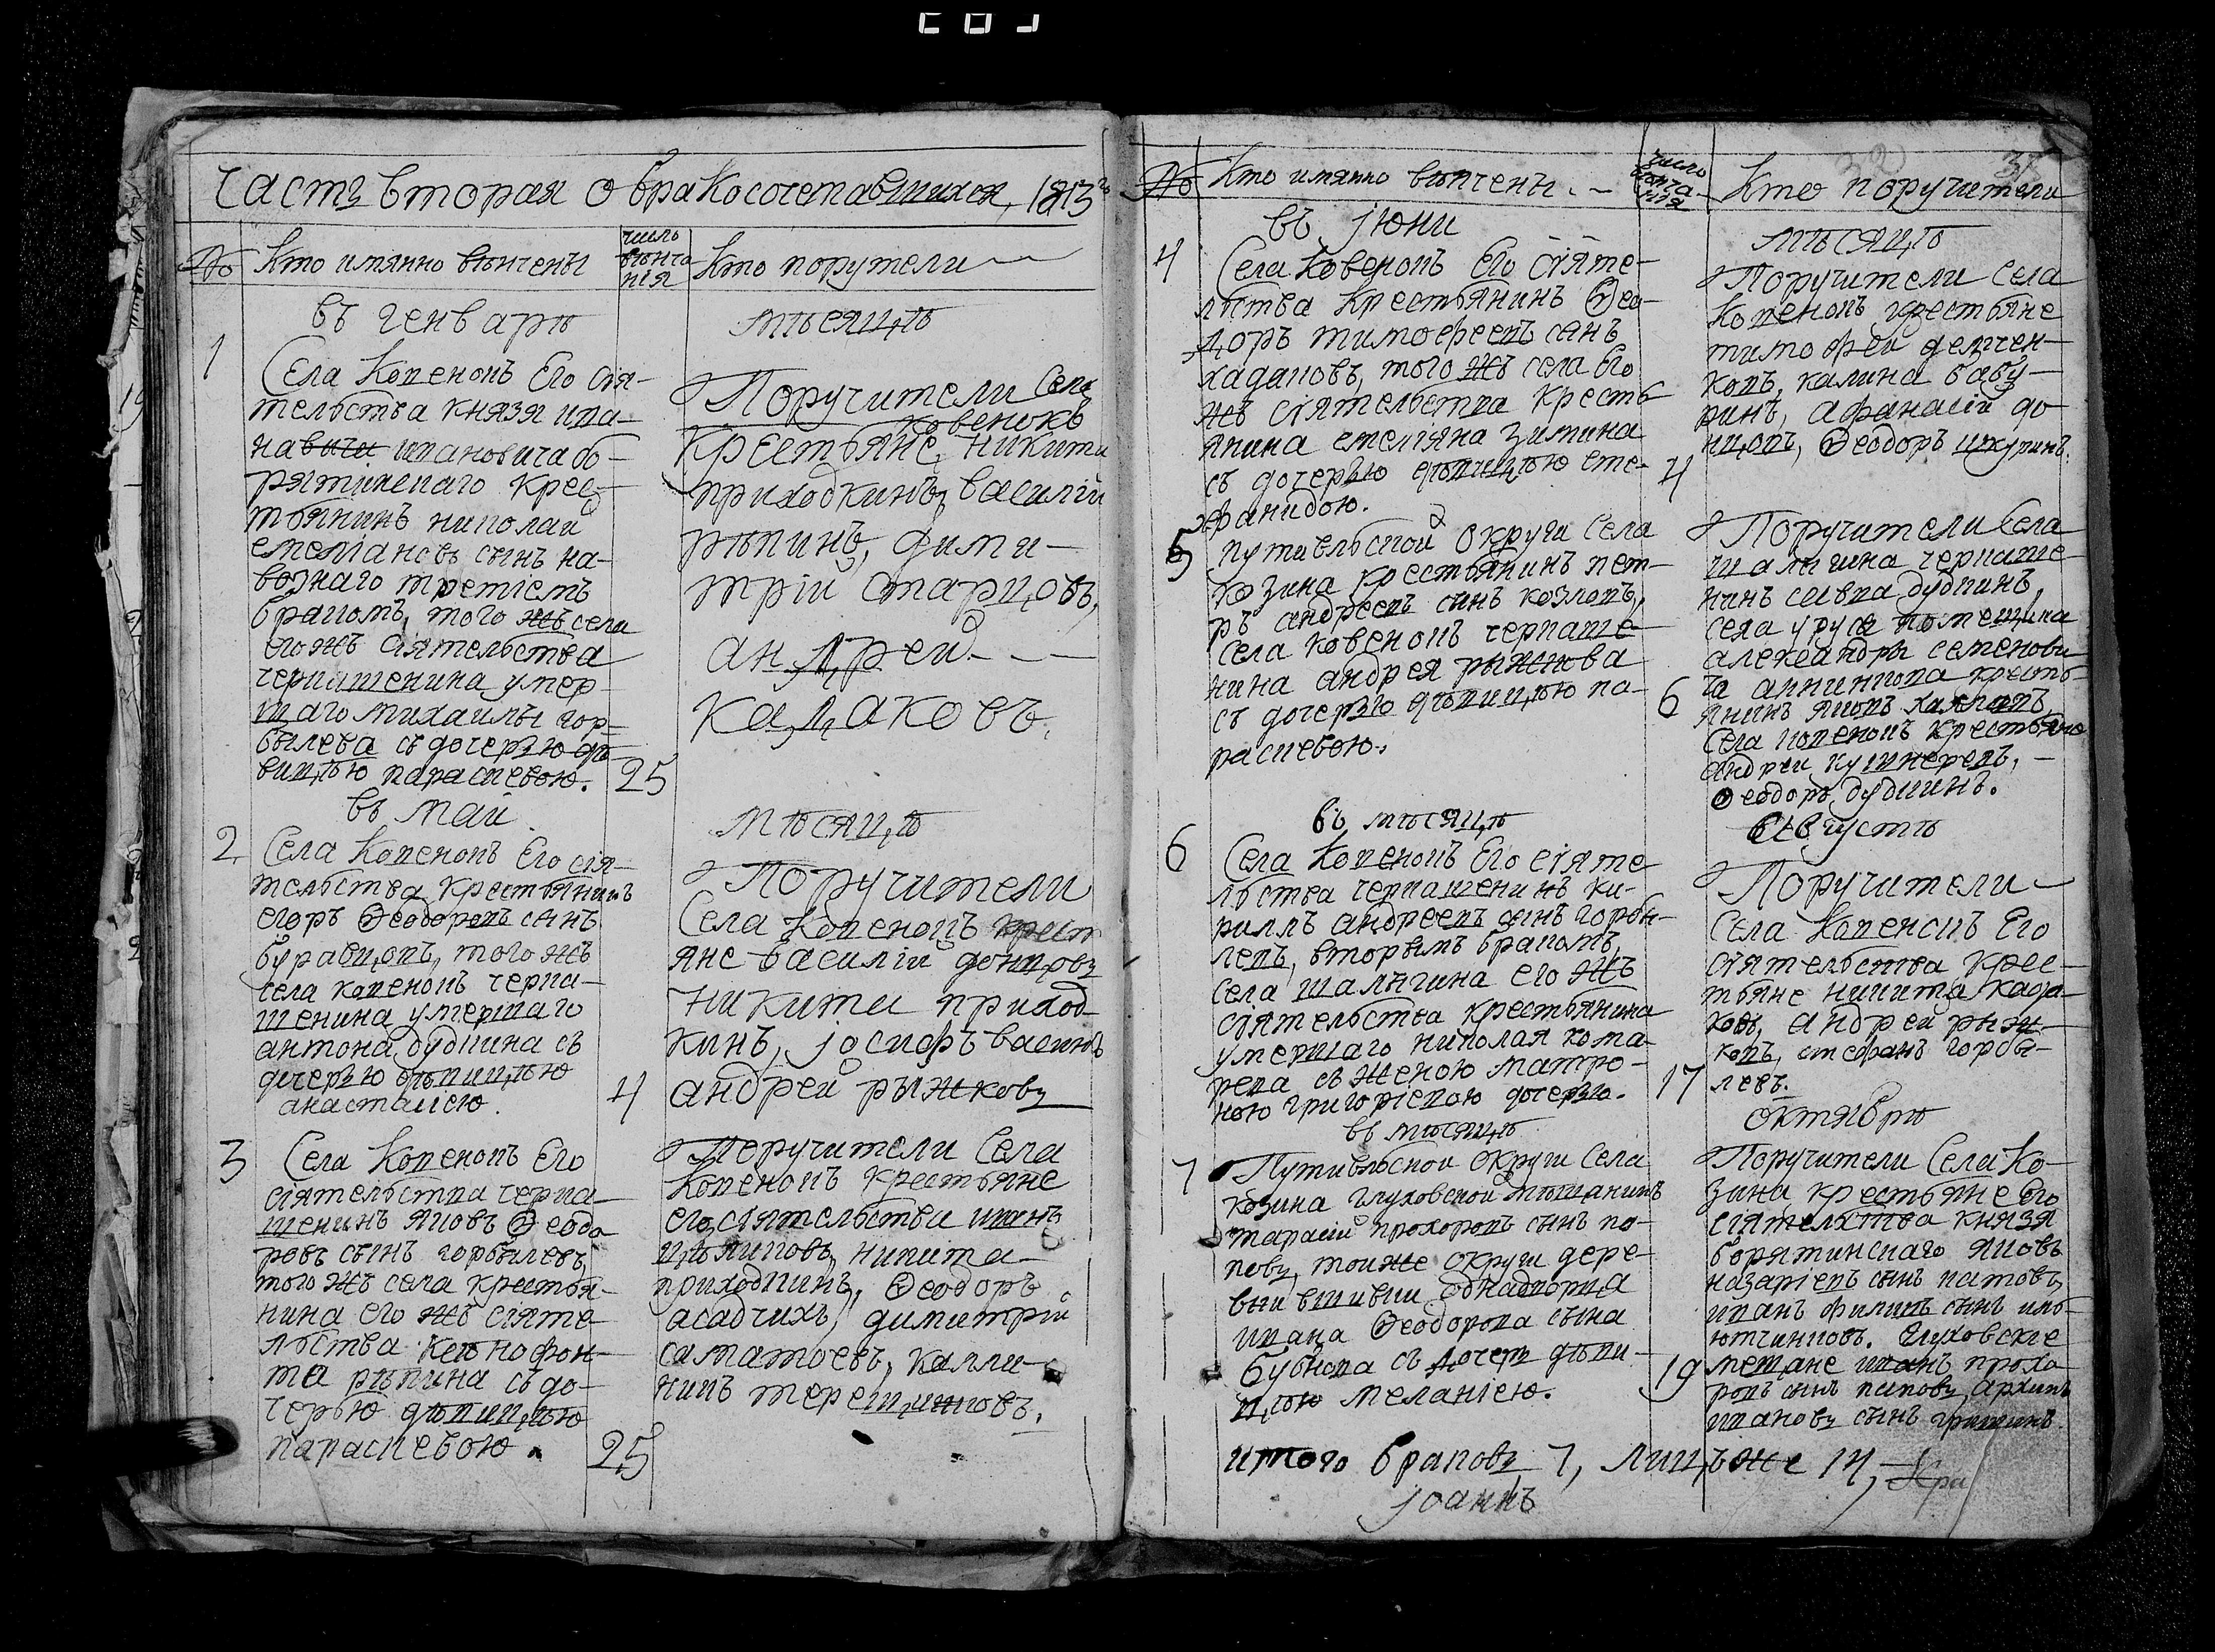 Часть вторая о бракосочетавшихся, 1813го
№ Кто имянно вѣнчены
число вѣнча
нія
Кто порутели
въ генварѣ
мѣсяцѣ
1
Села Ковенокъ Его сія-
тельства князя ива-
навичи ивановича бо-
рятинскаго крес-
тьянинъ николай
емеліановъ сынъ на-
вознаго третіемъ
бракомъ, того жъ села
его жъ сіятельства
черкашенина умер-
шаго михаилы гор-
былева съ дочерью дѣ
вицѣю параскевою.
25
Поручители Села
Ковенокъ
Крестьяне, никита
приходкинъ, василій
рѣпинъ, дими-
трій старцовъ,
андрей
кадаковъ.
въ маи
мѣсяцѣ
2.
Села Ковенокъ Его сія-
тельства крестьянинъ
егоръ Ѳеодоровъ сынъ
буравцовъ, того жъ
села ковенокъ черка-
шенина умершаго
антона дудкина съ
дочерью дѣвицѣю
анастасіею.
4
Поручители
Села Ковенокъ крест
яне василій донцовъ
никита приход-
кинъ, іосифъ васинъ
андрей рыжковъ
3
Села Ковенокъ Его
сіятельства черка-
шенинъ яковъ Ѳеодо
ровъ сынъ горбылевъ
того жъ села крестья-
нина его жъ сіяте-
льства ксенофон-
та рѣпина съ до-
черью дѣвицѣю
параскевою.
25
Поручители Села
Ковенокъ крестьяне
его сіятельства иванъ
никита
приходкинъ, Ѳеодоръ
асадчихъ, димитрій
саматоевъ, калли-
никъ
№ Кто имянно вѣнчены.
число
вѣнча
нія
Кто поручители
въ іюни
мѣсяцѣ
4
Села Ковенокъ Его сіяте-
льства крестьянинъ Ѳео-
доръ тимофеевъ сынъ
кадаковъ, того жъ села его
жъ сіятельства кресть
янина емеліяна зимина
съ дочерью дѣвицѣю сте-
фанидою.
4
Поручители Села
Ковенокъ крестьяне
тимофей демчен-
ковъ, калина бабу-
ринъ, афанасій до-
нцовъ, Ѳеодоръ шкуринъ.
5
путивльской округи Села
козина крестьянинъ пет-
ръ андреевъ сынъ козловъ,
села ковенокъ черкаше-
нина андрея рыжкова
съ дочерью дѣвицѣю па-
раскевою.
6
Поручители Села
шалыгина черкаше-
нинъ савва дудкинъ,
села уруса помещика
александры семенови
ча анненкова кресть-
янинъ яковъ
Села ковенокъ крестьяне
андрей кушнеревъ,
Ѳеодоръ дудкинъ.
въ мѣсяцѣ
августѣ
6
Села Ковенокъ Его сіяте
льства черкашенинъ ки-
риллъ андреевъ сынъ горбы-
левъ, вторымъ бракомъ,
села шалыгина его жъ
сіятельства крестьянина
умершаго николая кома-
рева съ женою матро-
ною григоріевою дочерью.
17
Поручители
Села Ковенокъ Его
сіятельства крес-
тьяне никита када-
ковъ, андрей рыж-
ковъ, стефанъ горбы-
левъ.
въ мѣсяцѣ
октябрѣ
7
Путивльской округи Села
козина глуховской мѣщанинъ
тарасій прохоровъ сынъ по-
повъ, тоиже округи дере-
вни вшивки однодворца
ивана Ѳеодорова сына
бубнова съ дочерю дѣви-
цѣю меланіею.
19
Поручители Села Ко-
зина крестьяне Его
сіятельства князя
борятинскаго яковъ
назаріевъ сынъ патовъ,
иванъ филиповъ сынъ
Глуховские
мещане иванъ прохо
ровъ сынъ поповъ, архипъ
ивановъ сынъ гришинъ.
итого браковъ, 7, лицъ же 14,
іоаннъ